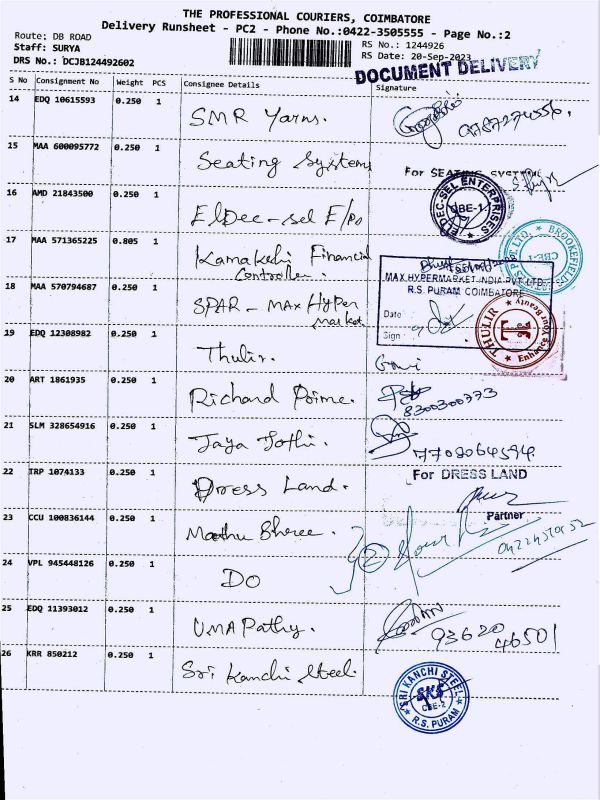 THE PROFESSIONAL COURIERS, COIMBATORE
Delivery Runsheet - PC2 - Phone No.:0422-3505555 - Page No.:2
Route: DB ROAD
RS No.: 1244926
Staff: SURYA
RS Date: 20-Sep-2023
DRS No.: DCJB124492602
DOCUMENT DELIVERY
S No Consignment No Weight PCS Consignee Details Signature
14 EDQ 10615593 0.250 1 SMR Yarns.
15 MAA 600095772 0.250 1 Seating Systems
For SEATING SYSTEM
16 AMD 21843500 0.250 1 ElDec-sel E/Po
ELDEC-SEL ENTERPRISES
CBE-1
17 MAA 571365225 0.805 1 Kamakchi Financial
Controller.
PVT LTD. ★ BROOKEFIELDS ★
CBE-1
18 MAA 570794687 0.250 1 SPAR - MAX Hyper
market
MAX HYPERMARKET INDIA PVT. LTD.,
R.S. PURAM COIMBATORE
Date
Sign
19 EDQ 12308982 0.250 1 Thulir.
THULIR ★ Enhances Your Beauty ★
T
20 ART 1861935 0.250 1 Richard Poime.
8300300373
21 SLM 328654916 0.250 1 Jaya Jothi.
7708064594.
22 TRP 1074133 0.250 1 Dress Land.
For DRESS LAND
Partner
23 CCU 100836144 0.250 1 Mathu Shree.
2
24 VPL 945448126 0.250 1 DO
25 EDQ 11393012 0.250 1 UMA Pathy.
93620
46501
26 KRR 850212 0.250 1 Sri Kanchi Steel.
SRI KANCHI STEEL
SKS
CBE-2
★ R.S. PURAM ★